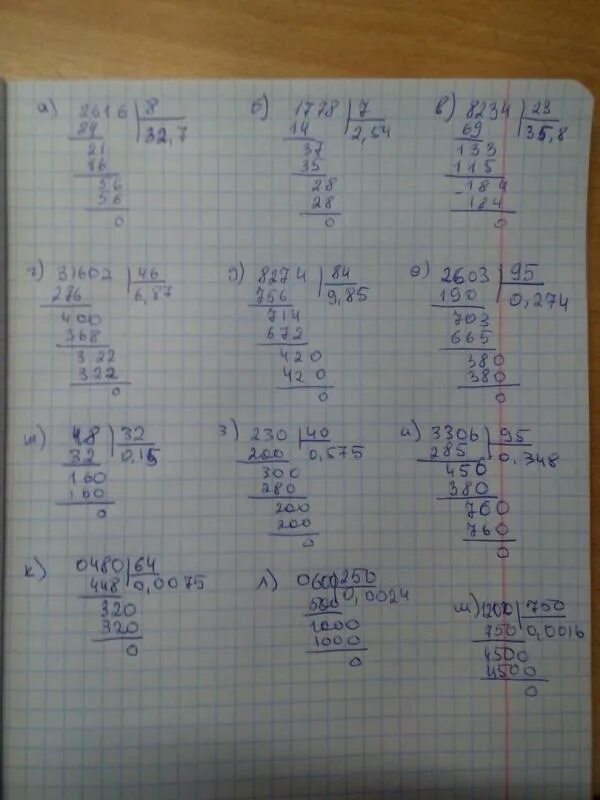 а) 2616 | 8
24 | 32,7
21
16
56
56
0
б) 1778 | 7
14 | 2,54
37
35
28
28
0
в) 8234 | 23
69 | 35,8
133
115
- 184
184
0
г) 31602 | 46
276 | 6,87
400
368
322
322
0
д) 8274 | 84
756 | 9,85
714
672
420
420
0
е) 2603 | 95
190 | 0,274
703
665
380
380
0
ж) 48 | 32
32 | 0,15
160
160
0
з) 230 | 40
200 | 0,575
300
280
200
200
0
и) 3306 | 95
285 | 0,348
456
380
760
760
0
к) 0480 | 64
448 | 0,0075
320
320
0
л) 0600 | 250
500 | 0,0024
1000
1000
0
м) 1200 | 750
750 | 0,0016
4500
4500
0